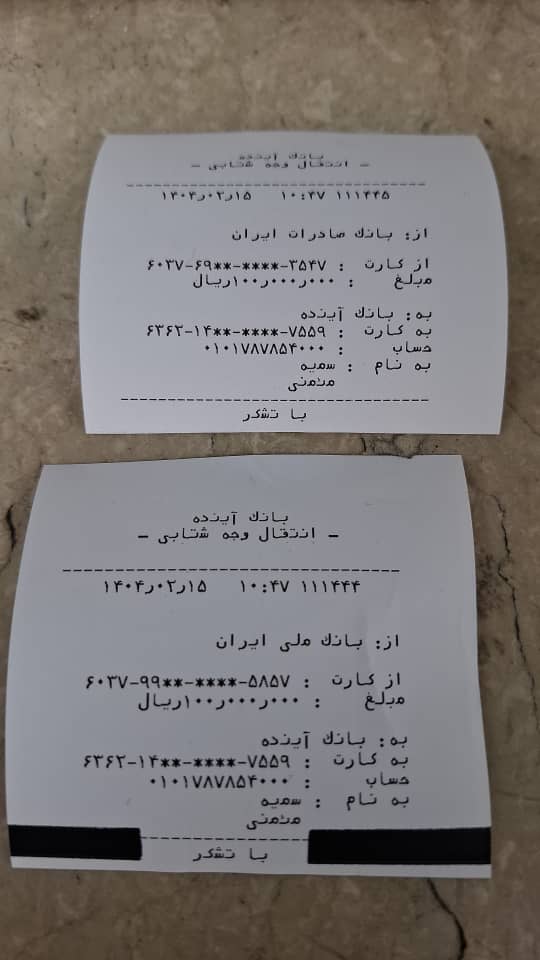 بانك آینده
- انتقال وجه شتابی -
۱۴۰۴٫۰۲٫۱۵ ۱۰:۴۷ ۱۱۱۴۴۵
از: بانك صادرات ایران
از کارت : ۶۰۳۷-۶۹**-****-۳۵۴۷
مبلغ : ۱۰۰٫۰۰۰٫۰۰۰ریال
به: بانك آینده
به کارت : ۶۳۶۲-۱۴**-****-۷۵۵۹
حساب : ۰۱۰۱۷۸۷۸۵۴۰۰۰
به نام : سمیه
مئمنی
با تشکر
بانك آینده
- انتقال وجه شتابی -
۱۴۰۴٫۰۲٫۱۵ ۱۰:۴۷ ۱۱۱۴۴۴
از: بانك ملی ایران
از کارت : ۶۰۳۷-۹۹**-****-۵۸۵۷
مبلغ : ۱۰۰٫۰۰۰٫۰۰۰ریال
به: بانك آینده
به کارت : ۶۳۶۲-۱۴**-****-۷۵۵۹
حساب : ۰۱۰۱۷۸۷۸۵۴۰۰۰
به نام : سمیه
مئمنی
با تشکر